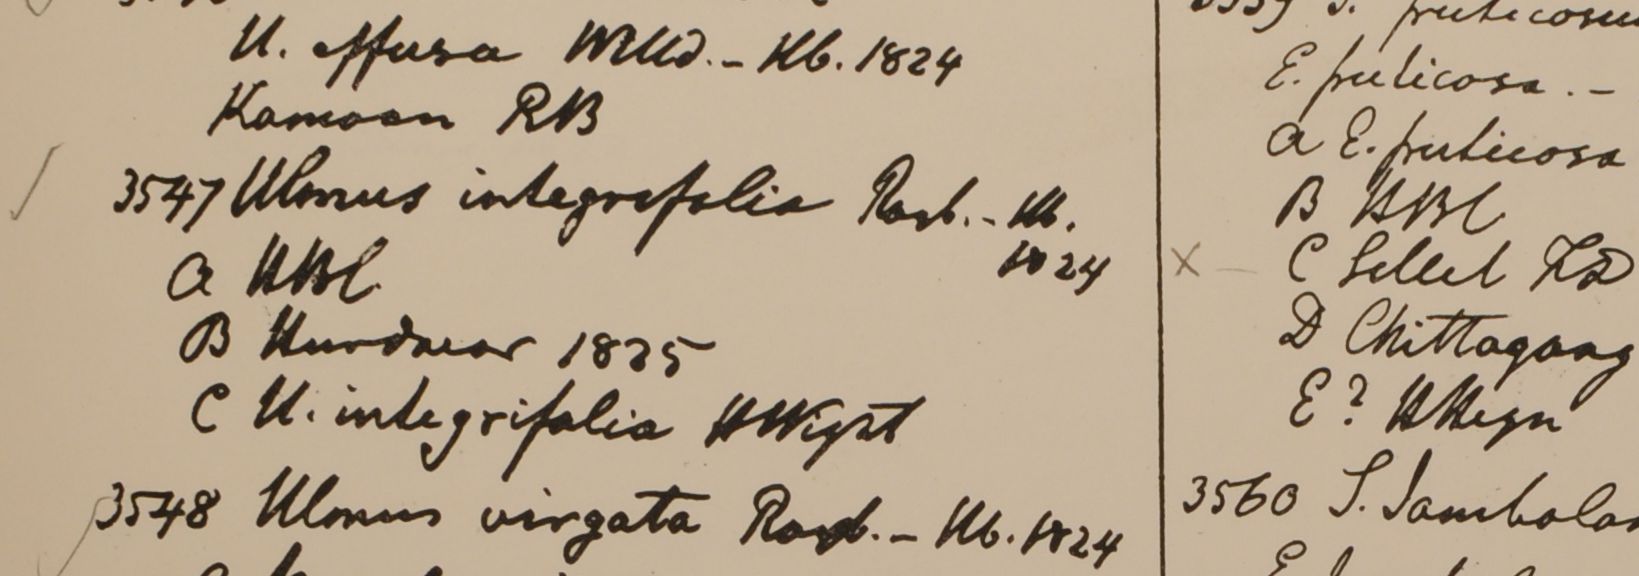 U. effusa Willd. - Hb. 1824
Kamoon RB
3547 Ulmus integrifolia Roxb. - Hb.
1824
a HBC
B Hurdwar 1825
C U. integrifolia HWight
3548 Ulmus virgata Roxb. - Hb. 1824
E. fruticosa . -
a E. fruticosa
B HBC
C Sillet
D Chittagong
E? HHeyn
3560